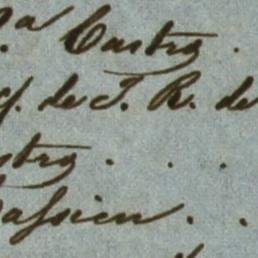 ª Castro.
de T. R. de
stro . . .
assien . .